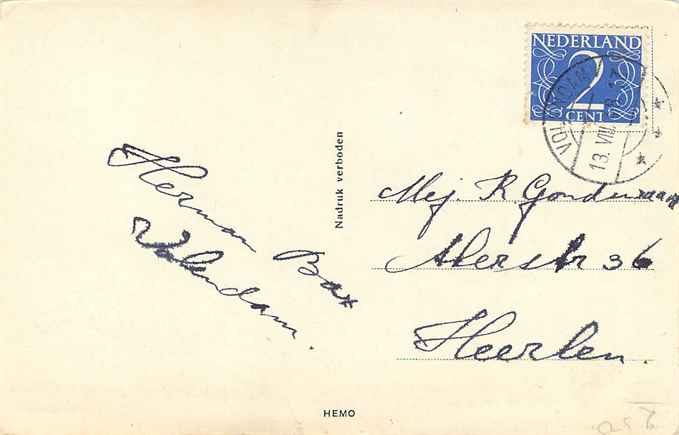 NEDERLAND
2
CENT
VOLENDAM
13. VIII
Herman Bax
Volendam.
Nadruk verboden
Mej. R. Gondermann
Akerstr 36
Heerlen.
HEMO